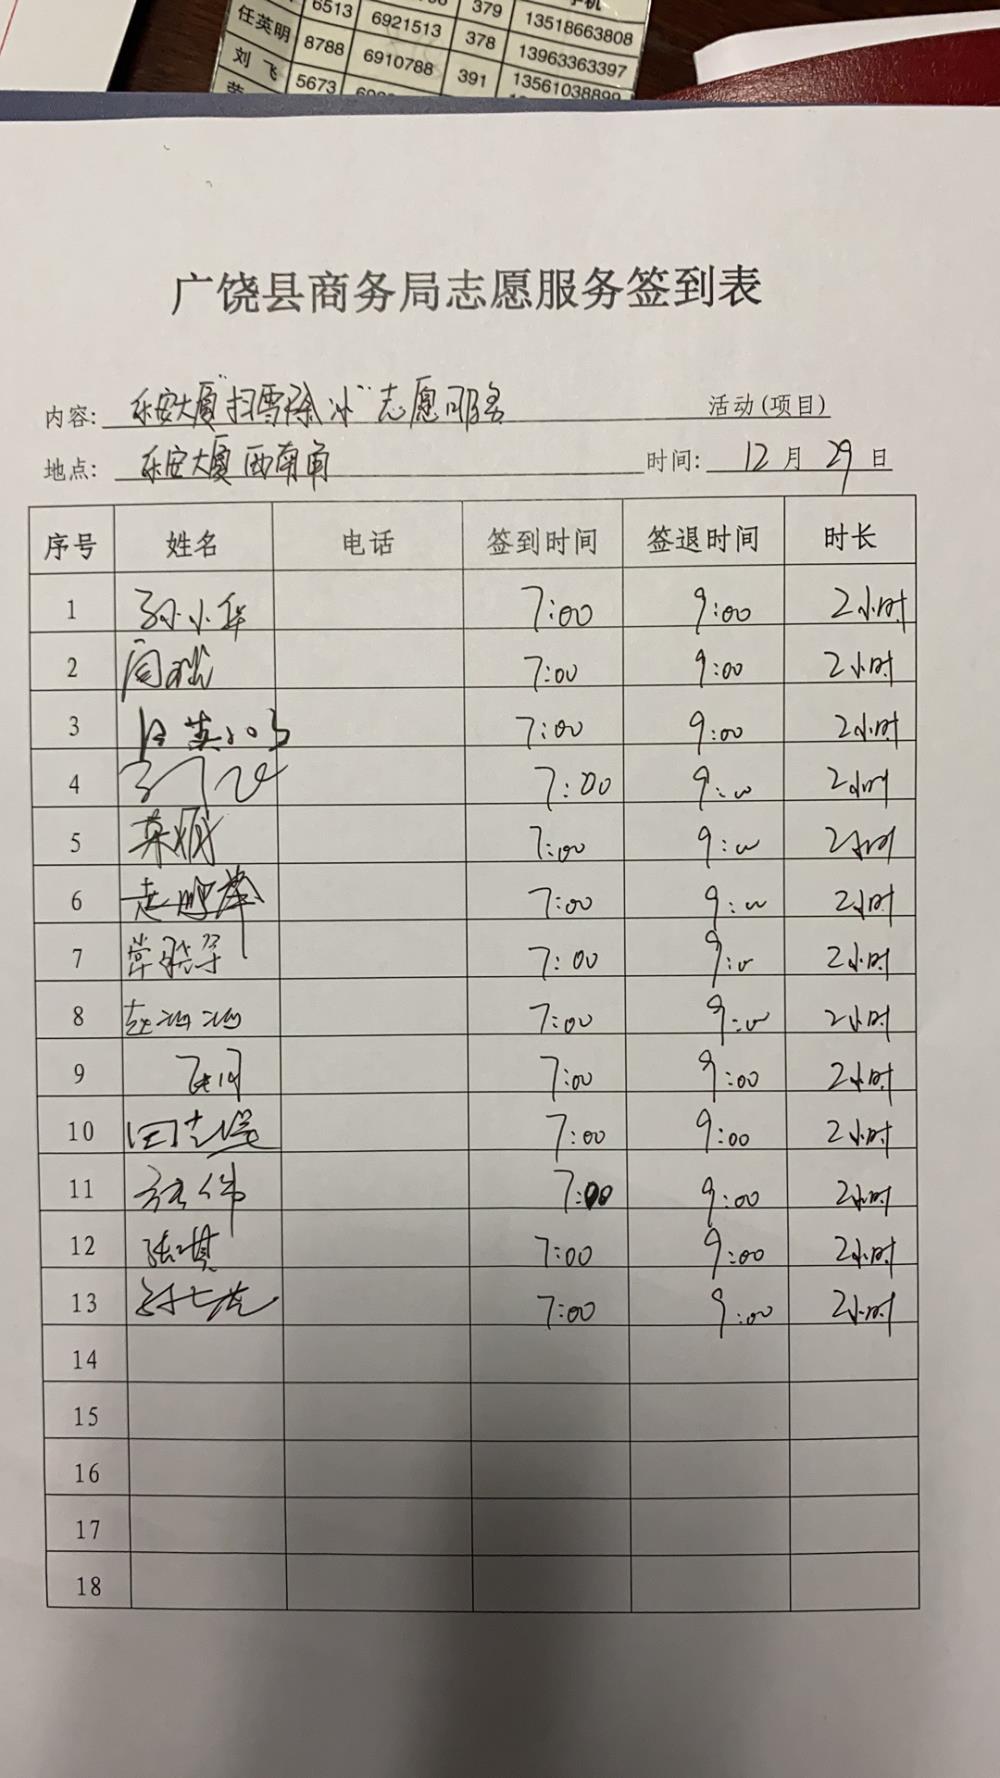 6513 6921513 379 13518663808
任英明 8788 6910788 378 13963363397
刘飞 5673 391 13561038899
广饶县商务局志愿服务签到表
内容: 乐安大厦"扫雪除冰"志愿服务 活动(项目)
地点: 乐安大厦西南角 时间: 12月29日
序号 姓名 电话 签到时间 签退时间 时长
1 孙小华 7:00 9:00 2小时
2 7:00 9:00 2小时
3 任英明 7:00 9:00 2小时
4 刘飞 7:00 9:00 2小时
5 7:00 9:00 2小时
6 7:00 9:00 2小时
7 7:00 9:00 2小时
8 7:00 9:00 2小时
9 7:00 9:00 2小时
10 7:00 9:00 2小时
11 7:00 9:00 2小时
12 张琪 7:00 9:00 2小时
13 7:00 9:00 2小时
14
15
16
17
18